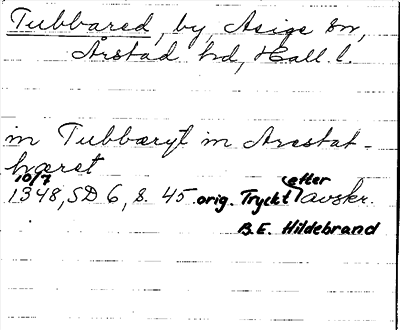 Tubbared, by, Asige sn,
Årstad hd, Hall. l.
in Tubbæryt in Arestat-
hæret
10/7
1348, SD 6, s. 45 orig. Tryckt efter avskr.
B.E. Hildebrand